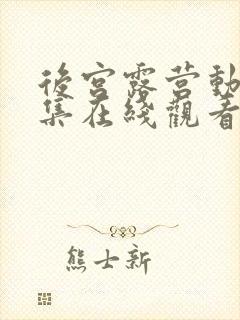 後宮露营動
集在綫觀看
熊士新